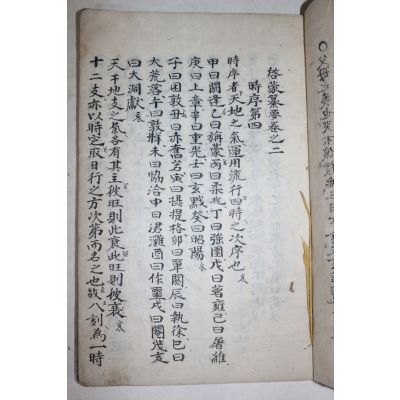 啓蒙纂要卷之二
時序第四
時序者天地之氣運用流行四時之次序也
甲曰閼逢乙曰旃蒙丙曰柔兆丁曰強圉戊曰著雍己曰屠維
庚曰上章辛曰重光壬曰玄黓癸曰昭陽
子曰困敦丑曰赤奮若寅曰提格卯曰單閼辰曰執徐巳曰
大荒落午曰敦牂未曰協洽申曰涒灘酉曰作噩戌曰閹茂亥
曰大淵獻
天干地支之氣各有其主彼旺則此衰此旺則彼衰
十二支亦以時定取日行之方次第而名之也故八刻為一時